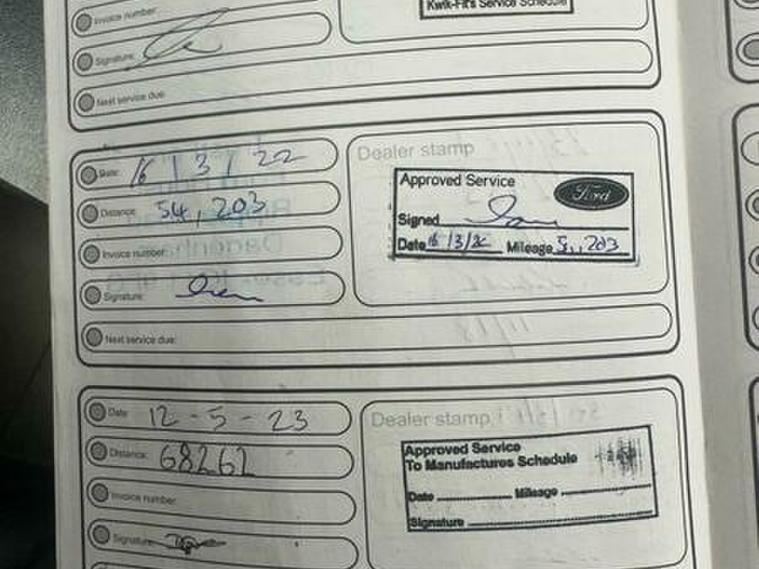 Kwik-Fit's Service Schedule
Invoice number:
Signature:
Next service due:
Date: 16 / 3 / 22
Dealer stamp
Approved Service
Ford
Distance: 54,203
Signed
Invoice number:
Date 16/3/22 Mileage 54,203
Signature:
Next service due:
Date: 12 - 5 - 23
Dealer stamp
Distance: 68262
Approved Service
To Manufactures Schedule
Invoice number:
Date Mileage
Signature:
Signature